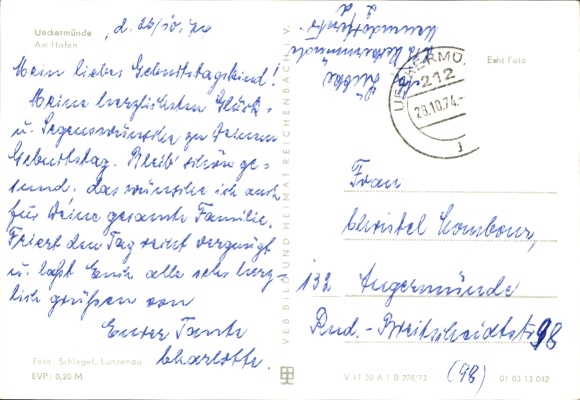 Ueckermünde
Am Hafen
d. 28/10.74
Mein liebes Geburtstagskind!
Meine herzlichsten Glück-
u. Segenswünsche zu Deinem
Geburtstag. Bleib' schön ge-
sund, das wünsche ich auch
für Deine gesamte Familie.
Feiert den Tag recht vergnügt
u. laßt Euch alle sehr herz-
lich grüßen von
Eurer Tante
Charlotte.
Foto: Schlegel, Lunzenau
EVP: 0,20 M
VEB BILD UND HEIMAT REICHENBACH i. V.
Ueckermünde
Echt Foto
UECKERMÜ
212
28.10.74.-
j
Frau
Christel
132 Angermünde
Rud.-Breitscheidtstr 98
(98)
V 11 50 A 1 B 228/73
01 03 13 042